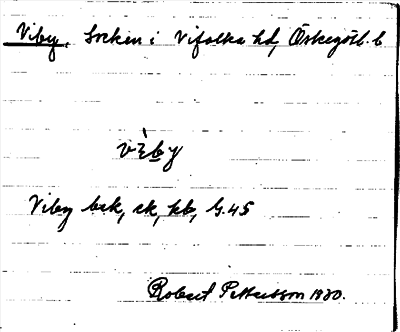 Viby, Socken i Vifolka hd, Östergötl. l
vìby
Viby bsk, sk, kb, G.45
Robert Pettersson 1930.